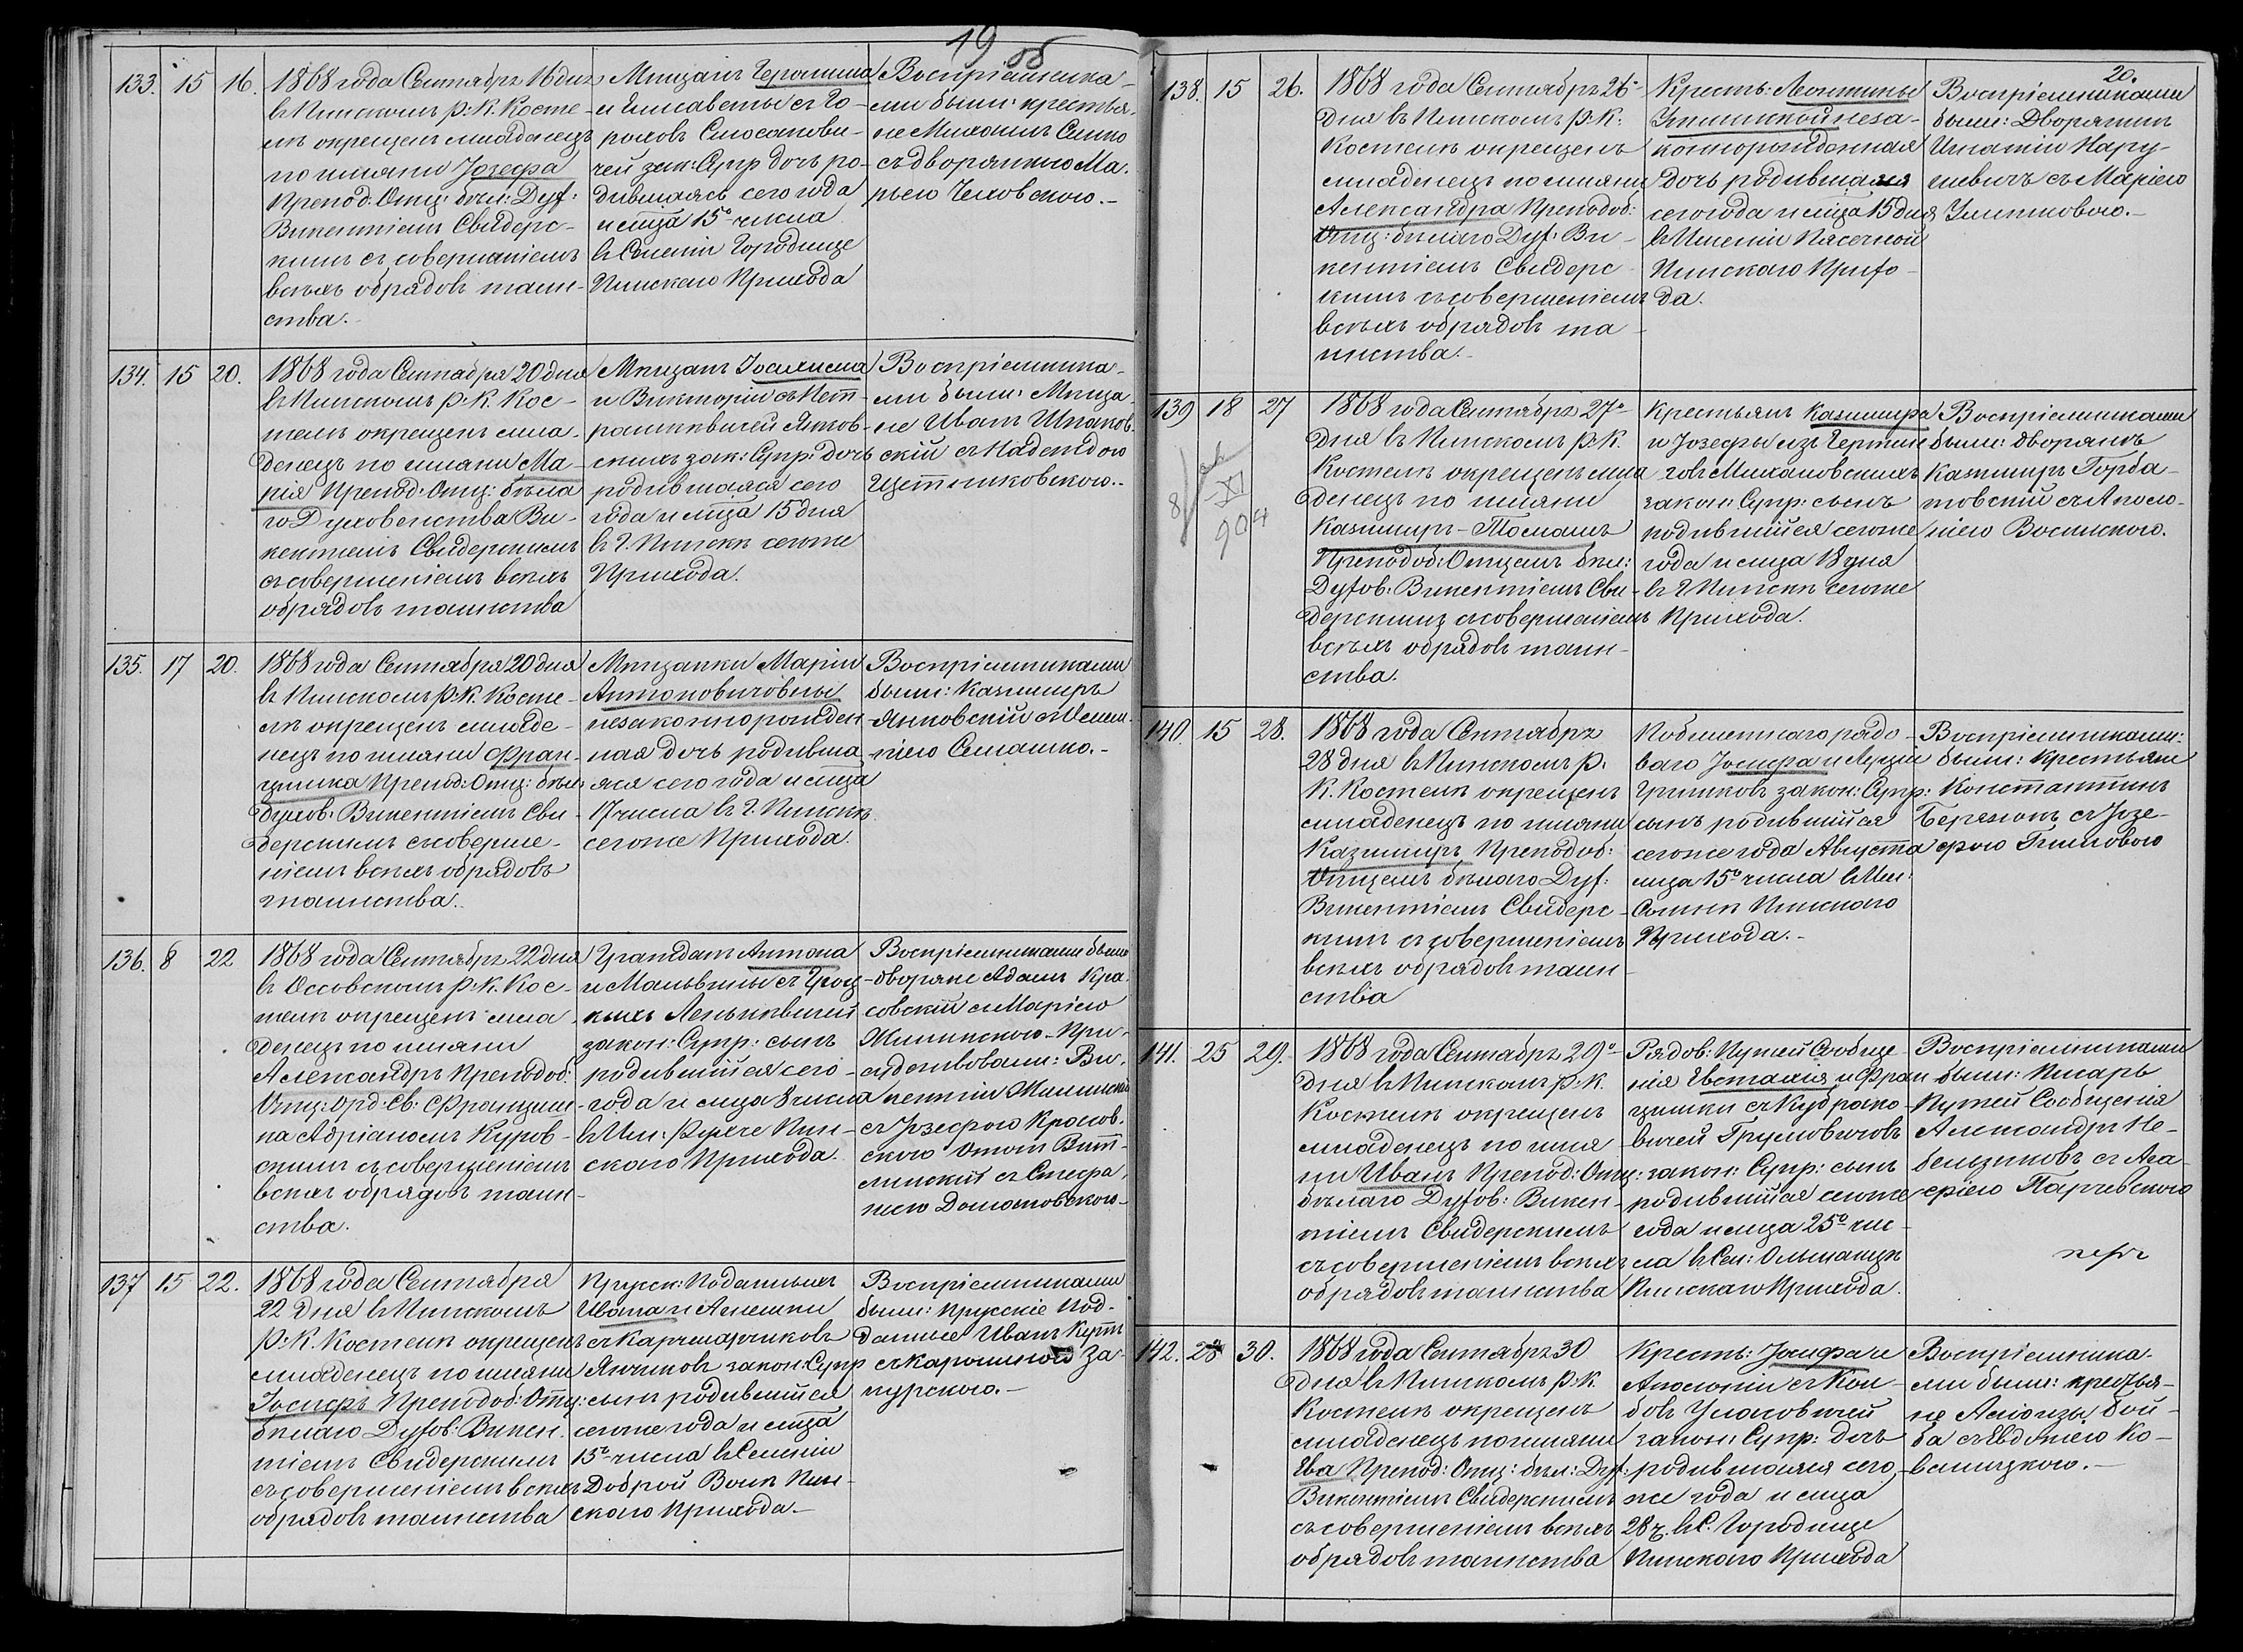 19 об
133. 15 16.
1868 года Сентябръ 16 дня
въ Пинскомъ р: К. Косте-
лѣ окрещенъ младенецъ
по имяни Іозефа
Препод: Отц: бѣл: Дух:
Викентіемъ Свидерс-
кимъ съ совершеніемъ
всѣхъ обрядовъ таин-
ства.
Мѣщанъ Геронима
и Елисаветы съ Го-
роховъ
чей зак: Супр дочь ро-
дившаяся сего года
и мѣсца 15º числа
въ Селеніи Городище
Пинскаго Прихода
Воспріемника-
ми были: крестья-
не Михаилъ Сенко
съ дворянкою Ма-
рьею Чеховскою.-
134. 15 20.
1868 года Сентября 20 дня
въ Пинскомъ р: К. Кос-
телѣ окрещенъ мла-
денецъ по имяни Ма-
рія Препод: Отц: бѣла
го Духовенства Ви-
кентіемъ Свидерскимъ
съ совершеніемъ всѣхъ
обрядовъ таинства
Мѣщанъ Іоахима
и Викторіи съ Пет-
рашкѣвичей Янков-
скихъ зак: Супр: дочь
родившаяся сего
года и мѣсца 15 дня
въ г. Пинскѣ сегоже
Прихода.
Воспріемника-
ми были: Мѣща
не Иванъ Шпаков-
скій съ Надеждою
Щетниковскою..
135. 17 20.
1868 года Сентября 20 дня
въ Пинскомъ р. К. Косте-
лѣ окрещенъ младе-
нецъ по имяни Фран-
цишка Препод: Отц: бѣл:
духов: Викентіемъ Сви-
дерскимъ съ соверше-
ніемъ всѣхъ обрядовъ
таинства.
Мѣщанки Маріи
Антоновичовны
незаконнорожден
ная дочь родивша
яся сего года и мѣсца
17 числа въ г. Пинскѣ
сегоже Прихода.
Воспріемниками
были: Казимиръ
Янковскій съ
ніею Семашко.-
136. 8 22
1868 года Сентябръ 22 дня
въ Оссовскомъ р: К. Кос-
телѣ окрещенъ мла
денецъ по имяни
Александръ Преподоб:
Отц: Орд: Св: Францыш-
ка Адріаномъ Куров-
скимъ съ совершеніемъ
всѣхъ обрядовъ таин-
ства.
Гражданъ Антона
и Мальвины съ Гроц-
кихъ Ленькѣвичей
закон: Супр: сынъ
родившійся сего
года и мѣсца 8 числа
въ Им: Пин-
скаго Прихода.
Воспріемниками были
дворяне Адамъ Кра-
совскій съ Маріею
Жилинскою. При-
судствовали: Ви-
кентій Жилинскій
съ Іозефою Красов-
скою Антонъ Вит-
линскій съ Стефа-
ніею Домановскою-
137 15 22.
1868 года Сентября
22 дня въ Пинскомъ
р: К. Костелѣ окрещенъ
младенецъ по имяни
Іосифъ Преподоб: Отц:
бѣлаго Духов: Викен-
тіемъ Свидерскимъ
съ совершеніемъ всѣхъ
обрядовъ таинства
Прусск: Подданныхъ
Ивана и Агнешки
съ Карчмарчиковъ
Янчиковъ закон: Супр
сынъ родившійся
сегоже года и мѣсца
15º числа въ Селеніи
Доброй Волѣ Пин-
скаго Прихода.-
Воспріемниками
были: Прусскіе Под-
данные Иванъ Кутъ
съ Каролиною За-
пурскою.-
20.
138. 15 26.
1868 года Сентябръ 26º
дня въ Пинскомъ р: К.
Костелѣ окрещенъ
младенецъ по имяни
Александра Преподоб:
Отц: бѣлаго Дух: Ви-
кентіемъ Свидерс-
кимъ съ совершеніемъ
всѣхъ обрядовъ та-
инства.-
Кресть: Леонтины
неза-
коннорожденная
дочь родившаяся
сего года и мѣсца 15 дня
въ Имѣніи Пясечной
Пинскаго Прихо-
да.
Воспріемниками
были: Дворянинъ
Игнатій Нару-
шевичъ съ Маріею
139 18 27
8/XI 904
1868 года Сентябръ 27º
дня въ Пинскомъ р. К.
Костелѣ окрещенъ мла
денецъ по имяни
Казимиръ-Томашъ
Преподоб: Отцемъ бѣл:
Духов: Викентіемъ Сви-
дерскимъ съ совершеніемъ
всѣхъ обрядовъ таин-
ства.
Крестьянъ Казимира
и Іозефы изъ
говъ Михаловскихъ
закон: Супр: сынъ
родившійся сегоже
года и мѣсца 18 дня
въ г Пинскѣ сегоже
Прихода.
Воспріемниками
были: дворянъ
Казимиръ Горба-
товскій съ Аполо-
ніею Восинскою.
140. 15 28.
1868 года Сентябръ
28 дня въ Пинскомъ р.
К. Костелѣ окрещенъ
младенецъ по имяни
Казимиръ Преподоб:
Отцемъ бѣлаго Дух:
Викентіемъ Свидерс-
кимъ съ совершеніемъ
всѣхъ обрядовъ таин-
ства
рядо-
ваго Іосифа и Луціи
Гришковъ закон: Супр:
сынъ родившійся
сегоже года Августа
мѣсца 15º числа въ Им:
Пинскаго
Прихода.-
Воспріемниками:
были: Крестьяне
Константинъ
съ Іозе-
фою
141. 25 29.
1868 года Сентябръ 29º
дня въ Пинскомъ р: К.
Костелѣ окрещенъ
младенецъ по имя
ни Иванъ Препод: Отц:
бѣлаго Духов: Викен-
тіемъ Свидерскимъ
съ совершеніемъ всѣхъ
обрядовъ таинства
Рядов: Путей Сообще
нія Евстахія и Фран
цишки съ Кубрако-
вичей Грумовичовъ
закон: Супр: сынъ
родившійся сегоже
года и мѣсца 25º чис-
ла въ Сел: Ольшанцѣ
Пинскаго Прихода.
Воспріемниками
были: Писарь
Путей Сообщенія
Александръ Не-
бельзиковъ съ Ага-
фіею Парчевскою
142. 28 30.
1868 года Сентябръ 30
дня въ Пинскомъ р: К.
Костелѣ окрещенъ
младенецъ по имяни
Ева Препод: Отц: бѣл: Дух:
Викентіемъ Свидерскимъ
съ совершеніемъ всѣхъ
обрядовъ таинства
Кресть: Іосифа и
Аполоніи съ Кол-
бовъ Уласовичей
закон: Супр: дочь
родившаяся сего
же года и мѣсца
28 ч. въ С. Городище
Пинскаго Прихода
Воспріемника-
ми были: крестья-
не Алоизы Бой-
ба съ Евдокіею Ко-
валицкою.-